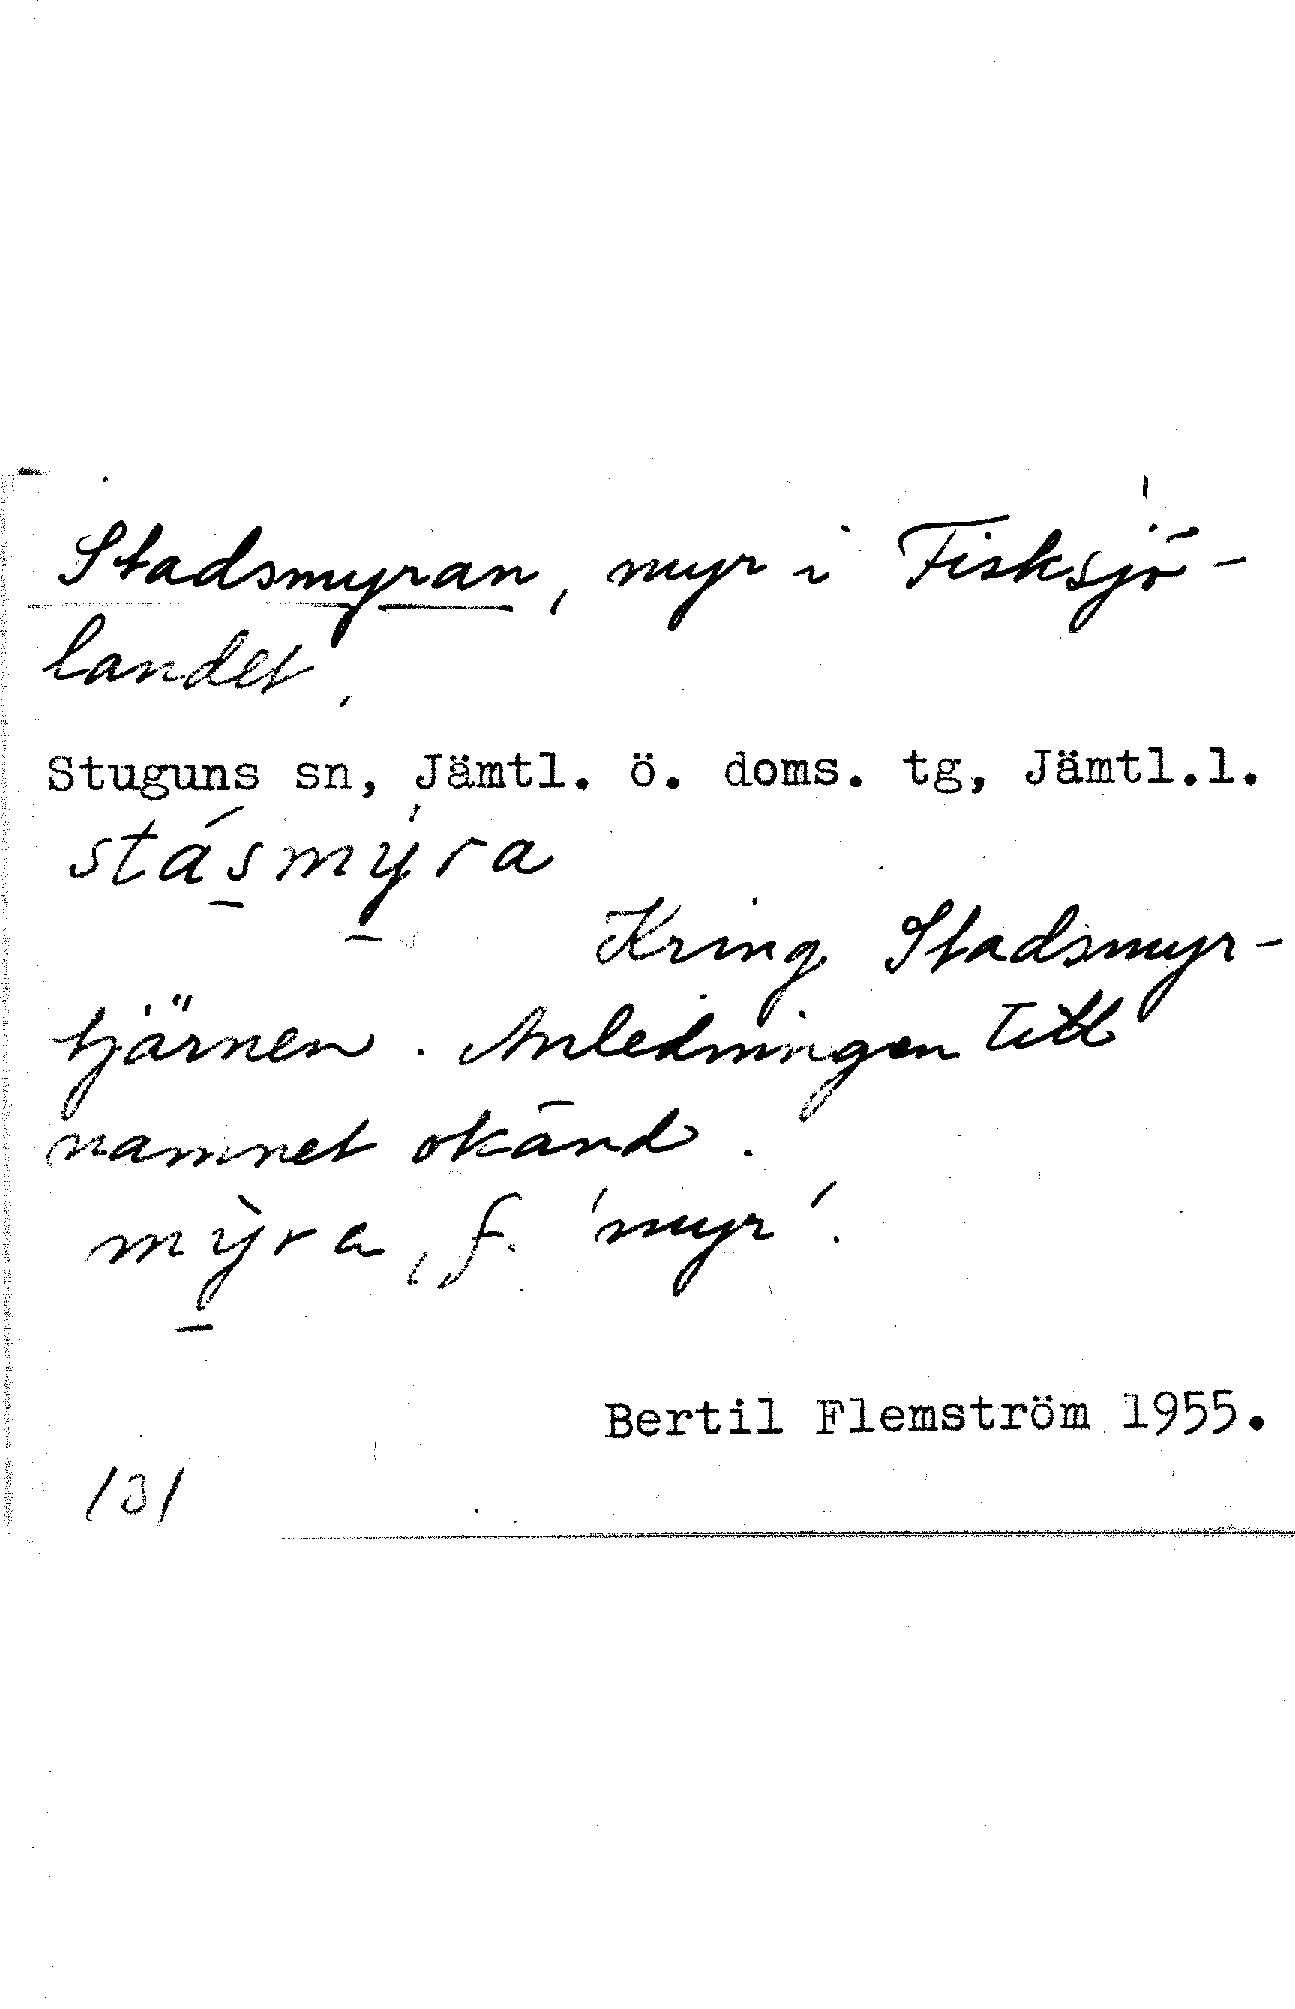 Stadsmyran, myr i Fisksjö-
landet.
Stuguns sn, Jämtl. ö. doms. tg, Jämtl.l.
stásmýra
Kring Stadsmyr-
tjärnen. Anledningen till
namnet okänd.
mỳra, f. 'myr'.
Bertil Flemström 1955.